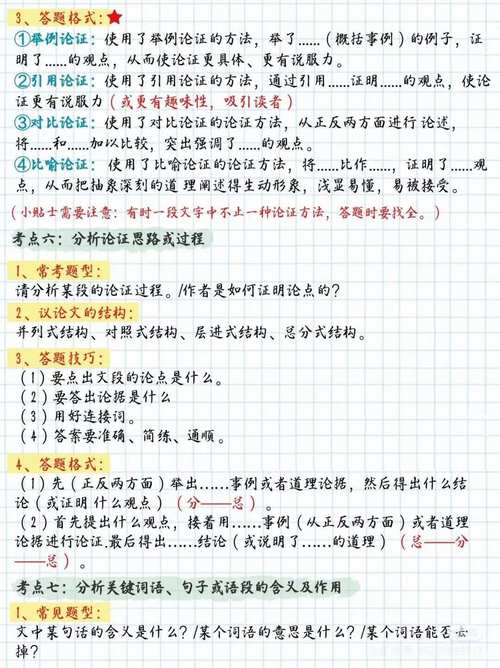 3、答题格式:★
①举例论证: 使用了举例论证的方法, 举了……(概括事例)的例子, 证
明了……的观点, 从而使论证更具体、更有说服力。
②引用论证: 使用了引用论证的方法, 通过引用……证明……的观点, 使论
证更有说服力(或更有趣味性, 吸引读者)
③对比论证: 使用了对比论证的论证方法, 从正反两方面进行 论述,
将……和……加以比较, 突出强调了……的观点。
④比喻论证: 使用了比喻论证的论证方法, 将……比作……, 证明了……观
点, 从而把抽象深刻的道 理阐述得生动形象, 浅显易懂, 易被接受。
(小贴士需要注意: 有时一段文字中不止一种论证方法, 答题时要找全。)
考点六: 分析论证思路或过程
1、常考题型:
请分析某段的论证过程。/作者是如何证明论点的?
2、议论文的结构:
并列式结构、对照式结构、层进式结构、总分式结构。
3、答题技巧:
(1)要点出文段的论点是什么。
(2)要答出论据是什么
(3)用好连接词。
(4)答案要准确、简练、通顺。
4、答题格式:
(1)先(正反两方面)举出……事例或者道理论据, 然后得出什么结
论(或证明 什么观点)(分——总)。
(2)首先提出什么观点, 接着用……事例(从正反两方面)或者道理
论据进行论证.最后得出……结论(或说明了……的道理)(总——分
——总)。
考点七: 分析关键词语、句子或语段的含义及作用
1、常见题型:
文中某句话的含义是什么? /某个词语的意思是什么? /某个词语能否去
掉?